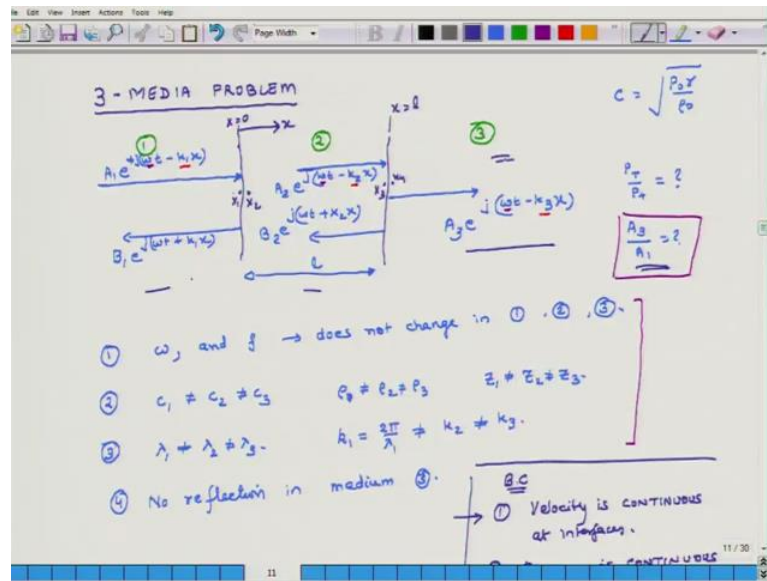 File Edit View Insert Actions Tools Help
Page Width
B I
3 - MEDIA PROBLEM
C = √(P₀γ/ρ₀)
x=0 → x
x=l
① ② ③
A₁e^{+j(ωt - k₁x)}
A₂e^{j(ωt - k₂x)}
x₁ x₂
x₃ x₄
B₁e^{j(ωt + k₁x)}
B₂e^{j(ωt + k₂x)}
A₃e^{j(ωt - k₃x)}
l
P_T/P_+ = ?
A₃/A₁ = ?
① ω, and f → does not change in ①, ②, ③.
② c₁ ≠ c₂ ≠ c₃ ≠ ρ₂ ≠ ρ₃ Z₁ ≠ Z₂ ≠ Z₃.
③ λ₁ ≠ λ₂ ≠ λ₃. k₁ = 2π/λ₁ ≠ k₂ ≠ k₃.
④ No reflection in medium ③.
B.C
→ ① Velocity is CONTINUOUS
at interfaces.
is CONTINUOUS
11 / 30
11